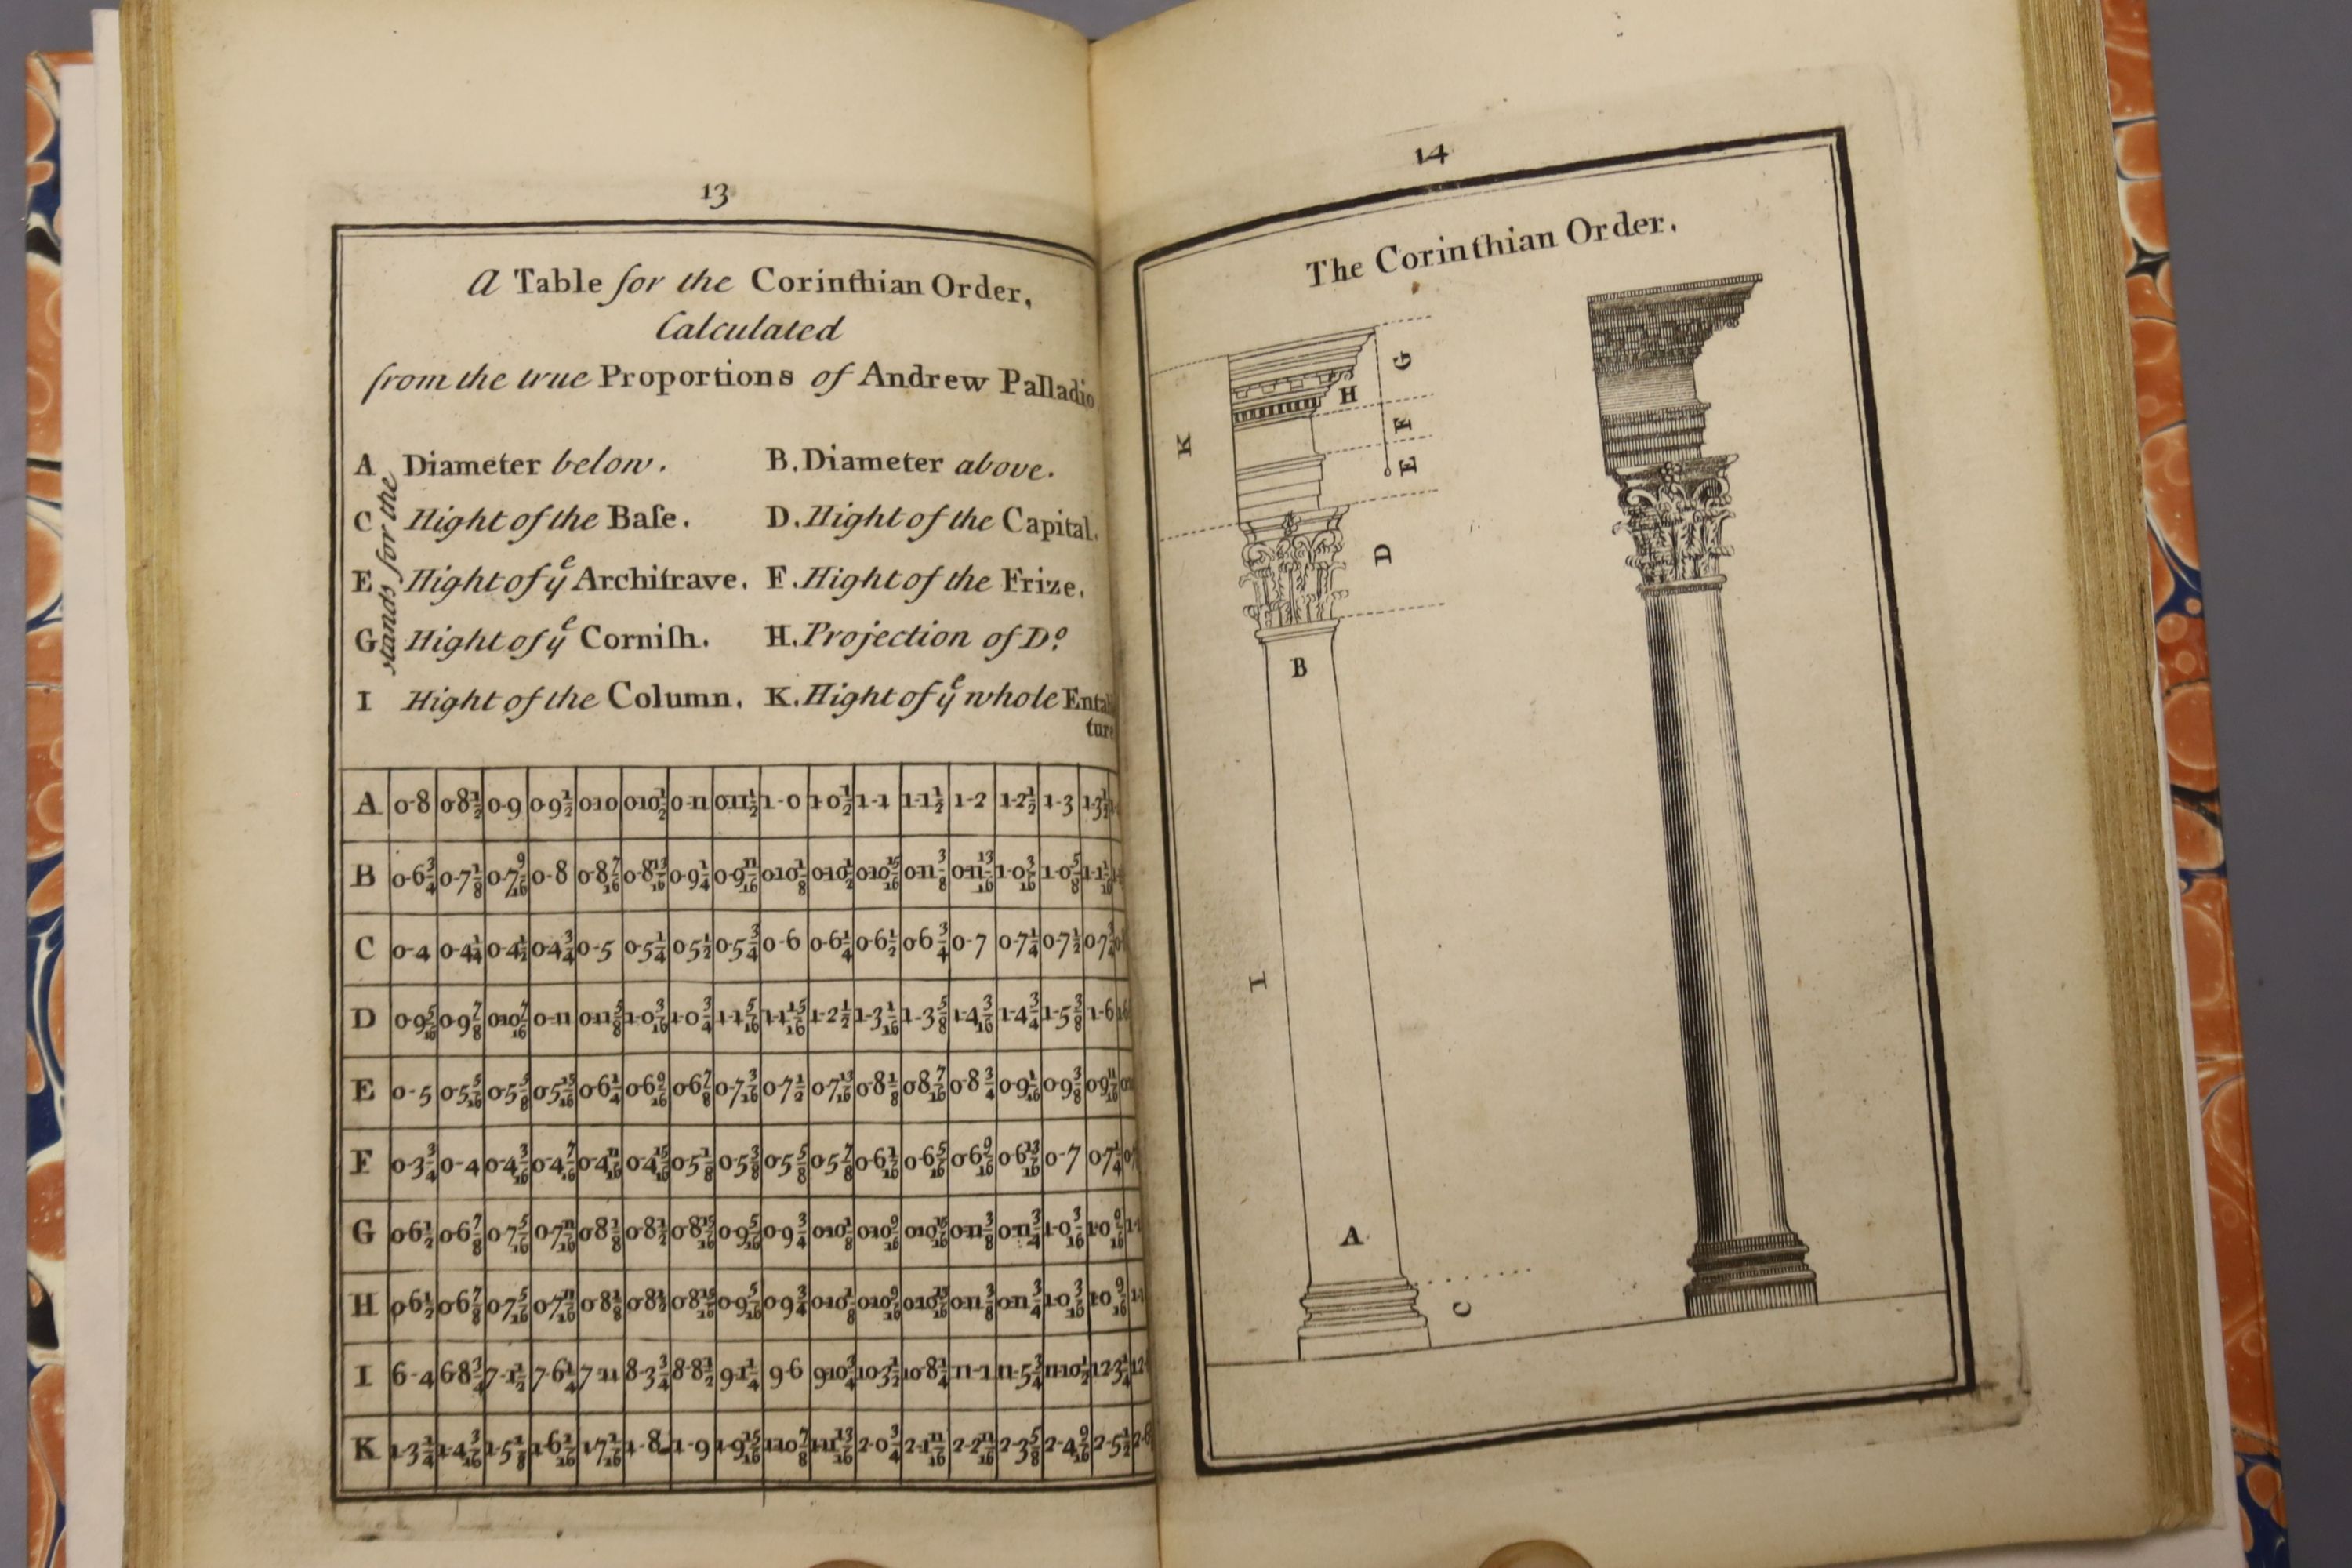 13
A Table for the Corinthian Order,
Calculated
from the true Proportions of Andrew Palladio
stands for the
A Diameter below. B. Diameter above.
C Hight of the Baſe. D. Hight of the Capital.
E Hight of yᵉ Architrave. F. Hight of the Frize.
G Hight of yᵉ Corniſh. H. Projection of Dº.
I Hight of the Column. K. Hight of yᵉ whole Enta
ture
A 0-8 0-8½ 0-9 0-9½ 0-10 0-10½ 0-11 0-11½ 1-0 1-0½ 1-1 1-1½ 1-2 1-2½ 1-3 1-3½
B 0-6¾ 0-7⅛ 0-7 9/16 0-8 0-8 7/16 0-8 13/16 0-9¼ 0-9 11/16 0-10⅛ 0-10½ 0-10 15/16 0-11⅜ 0-11 13/16 1-0 3/16 1-0⅝ 1-1 1/16
C 0-4 0-4¼ 0-4½ 0-4¾ 0-5 0-5¼ 0-5½ 0-5¾ 0-6 0-6¼ 0-6½ 0-6¾ 0-7 0-7¼ 0-7½ 0-7¾
D 0-9 5/16 0-9⅞ 0-10 7/16 0-11 0-11⅝ 1-0 3/16 1-0¾ 1-1 5/16 1-1 15/16 1-2½ 1-3 1/16 1-3⅝ 1-4 3/16 1-4¾ 1-5⅜ 1-6
E 0-5 0-5 5/16 0-5⅝ 0-5 15/16 0-6¼ 0-6 9/16 0-6⅞ 0-7 3/16 0-7½ 0-7 13/16 0-8⅛ 0-8 7/16 0-8¾ 0-9 1/16 0-9⅜ 0-9 11/16
F 0-3¾ 0-4 0-4 3/16 0-4 7/16 0-4 11/16 0-4 15/16 0-5⅛ 0-5⅜ 0-5⅝ 0-5⅞ 0-6 1/16 0-6 5/16 0-6 9/16 0-6 13/16 0-7 0-7¼
G 0-6½ 0-6⅞ 0-7 5/16 0-7 11/16 0-8⅛ 0-8½ 0-8 15/16 0-9 5/16 0-9¾ 0-10⅛ 0-10 9/16 0-10 15/16 0-11⅜ 0-11¾ 1-0 3/16 1-0 9/16
H 0-6½ 0-6⅞ 0-7 5/16 0-7 11/16 0-8⅛ 0-8½ 0-8 15/16 0-9 5/16 0-9¾ 0-10⅛ 0-10 9/16 0-10 15/16 0-11⅜ 0-11¾ 1-0 3/16 1-0 9/16
I 6-4 6-8¾ 7-1½ 7-6¼ 7-11 8-3¾ 8-8½ 9-1¼ 9-6 9-10¾ 10-3½ 10-8¼ 11-1 11-5¾ 11-10½ 12-3¼
K 1-3¼ 1-4 3/16 1-5⅛ 1-6 1/16 1-7 1/16 1-8 1-9 1-9 15/16 1-10⅞ 1-11 13/16 2-0¾ 2-1 11/16 2-2 11/16 2-3⅝ 2-4 9/16 2-5½
14
The Corinthian Order.
G
H
K
F
E
D
B
I
A
C